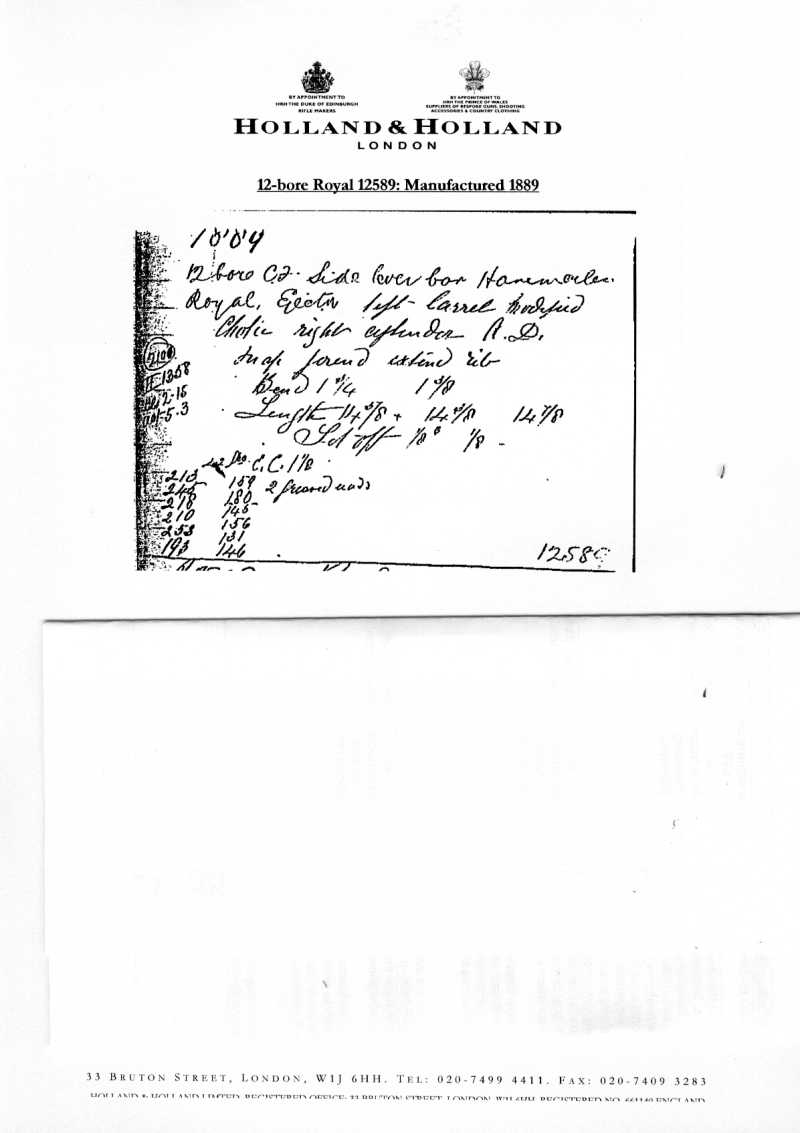 BY APPOINTMENT TO
HRH THE DUKE OF EDINBURGH
RIFLE MAKERS
BY APPOINTMENT TO
HRH THE PRINCE OF WALES
SUPPLIERS OF BESPOKE GUNS, SHOOTING
ACCESSORIES & COUNTRY CLOTHING
HOLLAND & HOLLAND
LONDON
12-bore Royal 12589: Manufactured 1889
12 bore C.F. Side lever bar
Royal, Ejector left barrel modified
Choke right cylinder R.D.
Snap forend extend rib
Bend 1 3/4 1 3/8
Length 14 3/8 + 14 3/8 14 7/8
Set off 1/8 1/8
E.C. 1 1/8
213 159 2 greased wads
245 180
218 145
210 156
253 131
193 146
1258
33 BRUTON STREET, LONDON, W1J 6HH. TEL: 020-7499 4411. FAX: 020-7409 3283
HOLLAND & HOLLAND LIMITED. REGISTERED OFFICE: 33 BRUTON STREET, LONDON, W1J 6HH. REGISTERED NO. 661140 ENGLAND